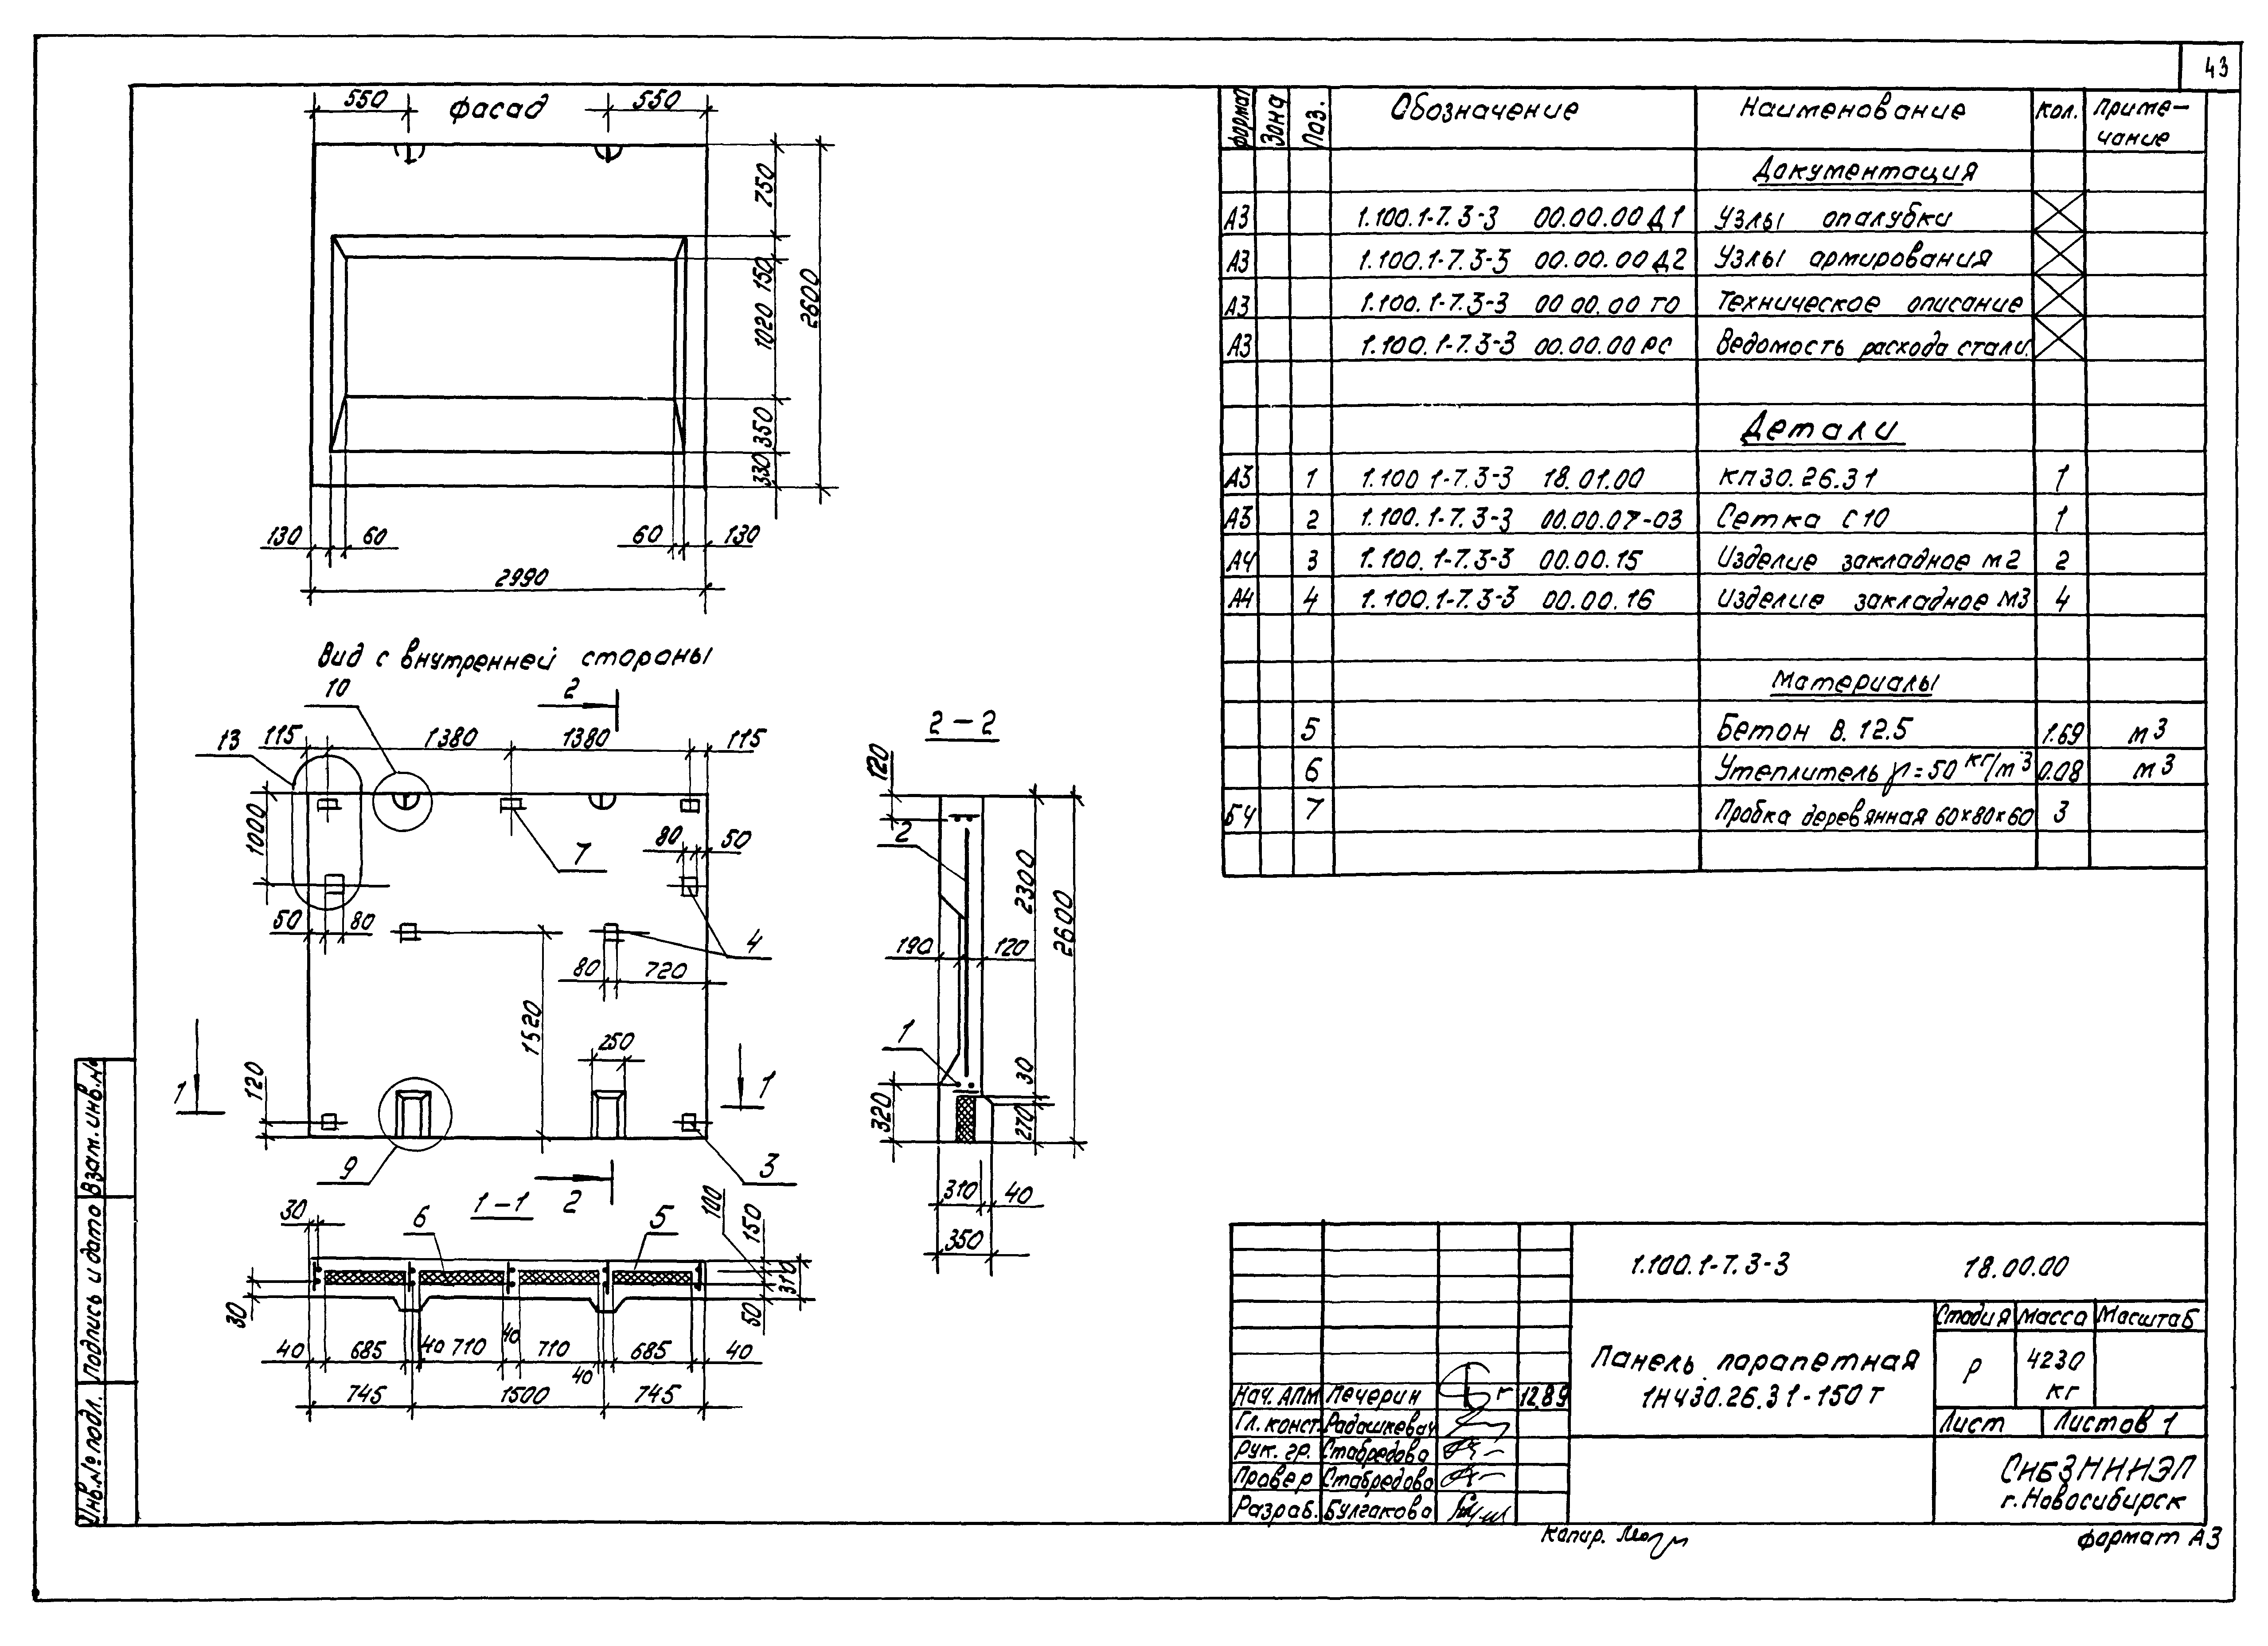 43
550 Фасад 550
750
150
1020
350
330
2600
130 60 60 130
2990
Вид с внутренней стороны
10 2
13 115 1380 1380 115
1000
7
80 50
50 80
4
80 720
1520
250
120
1 1
9 3
2
2-2
120
2
2300
2600
190 120
1
30
320
270
310 40
350
1-1
30 6 5 100
150
310
50
30
40 685 40 710 40 710 40 685 40
745 1500 745
Формат Зона Поз. Обозначение Наименование Кол. Приме-
чание
Документация
А3 1.100.1-7.3-3 00.00.00 Д1 Узлы опалубки
А3 1.100.1-7.3-3 00.00.00 Д2 Узлы армирования
А3 1.100.1-7.3-3 00.00.00 ТО Техническое описание
А3 1.100.1-7.3-3 00.00.00 РС Ведомость расхода стали.
Детали
А3 1 1.100 1-7.3-3 18.01.00 КП30.26.31 1
А3 2 1.100.1-7.3-3 00.00.07-03 Сетка С10 1
А4 3 1.100.1-7.3-3 00.00.15 Изделие закладное М2 2
А4 4 1.100.1-7.3-3 00.00.16 Изделие закладное М3 4
Материалы
5 Бетон В.12.5 1.69 м3
6 Утеплитель γ=50 кг/м3 0.08 м3
БЧ 7 Пробка деревянная 60×80×60 3
1.100.1-7.3-3 18.00.00
Панель парапетная
1НЧ30.26.31-150Т
Стадия Масса Масштаб
Р 4230
кг
Лист Листов 1
СибЗНИИЭП
г.Новосибирск
Нач. АПМ Печерин 12.89
Гл. конст. Радашкевич
Рук. гр. Стабредова
Провер Стабредова
Разраб. Булгакова
Копир.
Формат А3
Взам. инв. №
Подпись и дата
Инв. № подл.